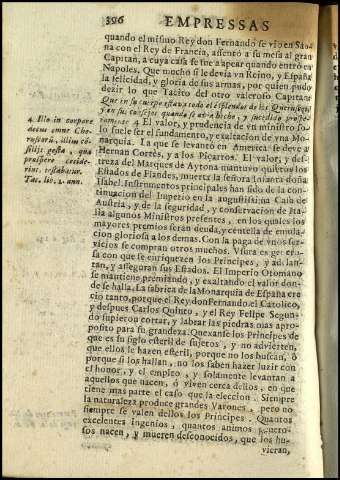 396 EMPRESSAS
quando el mismo Rey don Fernando se vio en Sao-
na con el Rey de Francia, assentò a su mesa al gran
Capitan, a cuya casa se fue a apear quando entrò en
Napoles. Que mucho si le devia vn Reino, y España
la felicidad, y gloria de sus armas, por quien pudo
dezir lo que Tacito del otro valeroso Capitan
Que en su cuerpo estava todo el esplendor de los Queruscos,
y en sus consejos quando se avia hecho, y sucedido prospe-
ramente 4 El valor, y prudencia de vn ministro so-
lo suele ser el fundamento, y exaltacion de vna Mo-
narquia. La que se levantò en America se deve a
Hernan Cortès, y a los Piçarros. El valor, y des-
treza del Marques de Aytona mantuvo quietos los
Estados de Flandes, muerta la señora Infanta doña
Isabel. Instrumentos principales han sido de la con-
tinuacion del Imperio en la augustissima Casa de
Austria, y de la seguridad, y conservacion de Ita-
lia algunos Ministros presentes, en los quales los
mayores premios seràn deuda, y centella de emula-
cion gloriosa a los demas. Con la paga de vnos ser-
vicios se compran otros muchos. Vsura es gene-
sa con que se enriquecen los Principes, y adelan-
tan, y asseguran sus Estados. El Imperio Otomano
se mantiene premiando, y exaltando el valor don-
de se halla. La fabrica de la Monarquia de España cre
ciò tanto, porque el Rey don Fernando el Catolico,
y despues Carlos Quinto, y el Rey Felipe Segun-
do supieron cortar, y labrar las piedras mas apro-
posito para su grandeza. Quexanse los Principes de
que es su siglo esteril de sujetos, y no advierten,
que ellos le hazen esteril, porque no los buscan, ò
porque si los hallan, no los saben hazer luzir con
el honor, y el empleo, y solamente levantan a
aquellos que nacen, ò viven cerca dellos, en que
tiene mas parte el caso que la eleccion. Siempre
la naturaleza produce grandes Varones, pero no
siempre se valen dellos los Principes. Quantos
excellentes ingenios, quantos animos genero-
sos nacen, y mueren desconocidos, que los hu-
vieran,
4 Illo in corpore
decus omne Che-
ruscorū, illius cō-
silijs gesta, quæ
prospere cecide-
rint, testabatur.
Tac. lib. 2. ann.